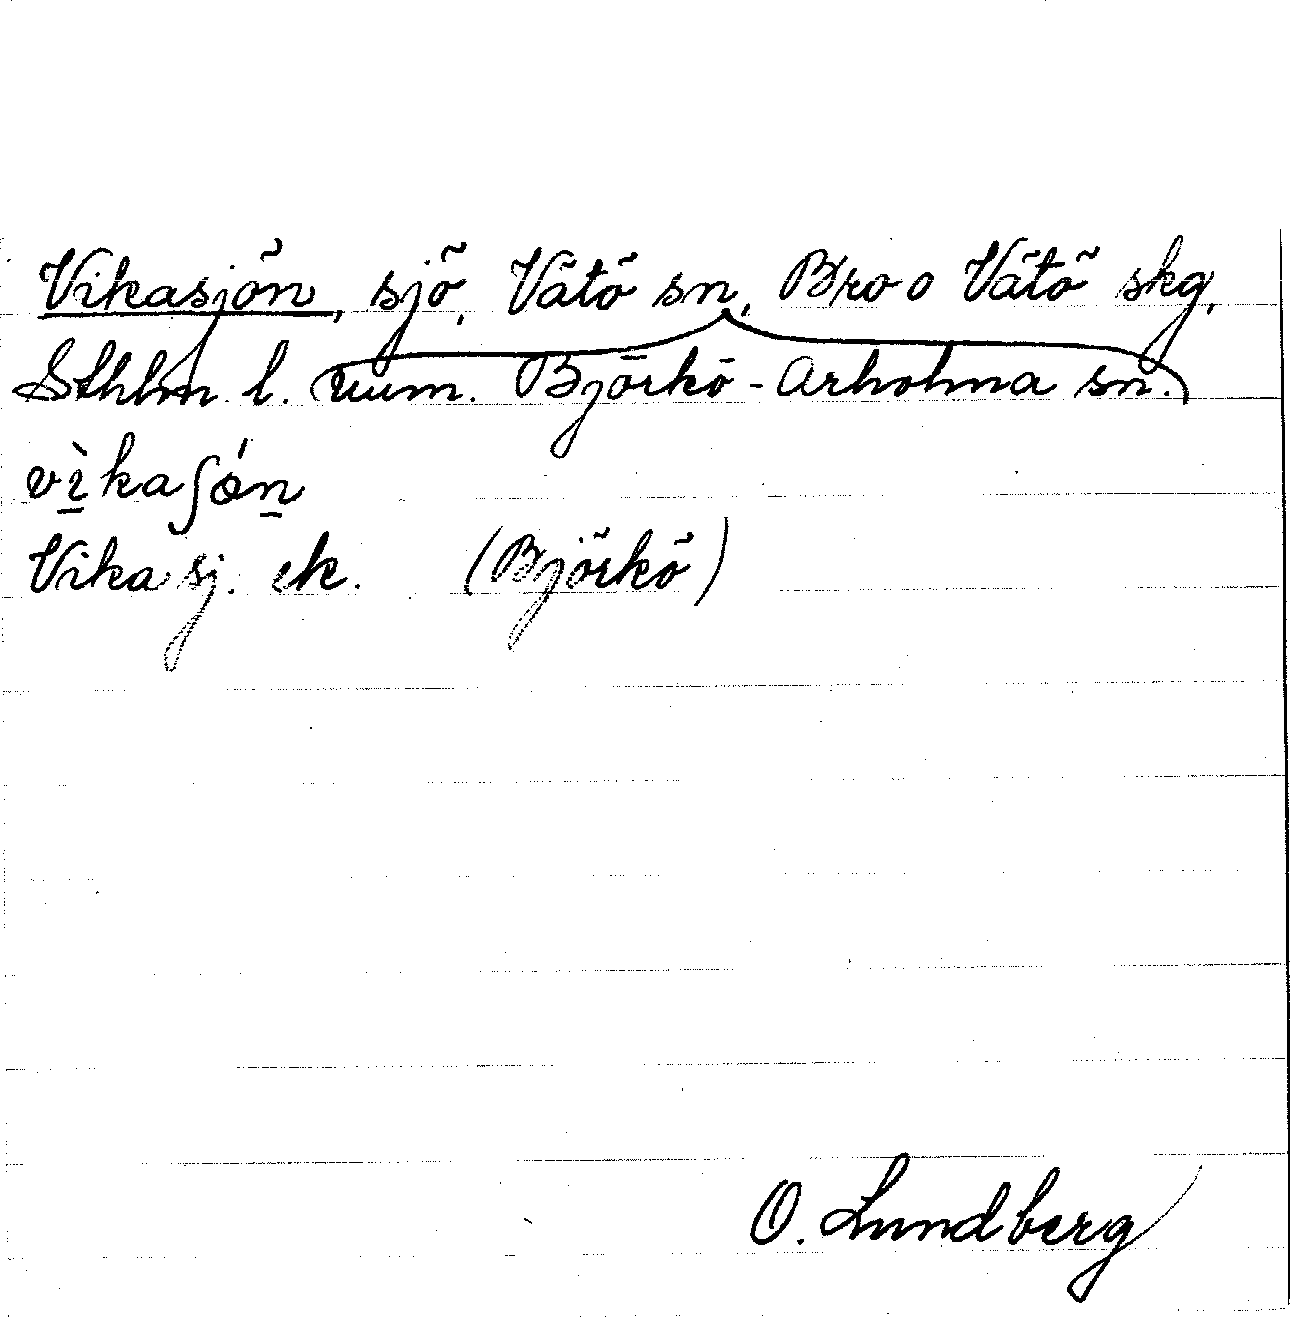 Vikasjön, sjö, Vätö sn, Bro o Vätö skg,
Sthlm l. (num. Björkö-Arholma sn.)
vìkaʃǿn
Vikasj. ek. (Björkö)
O. Lundberg